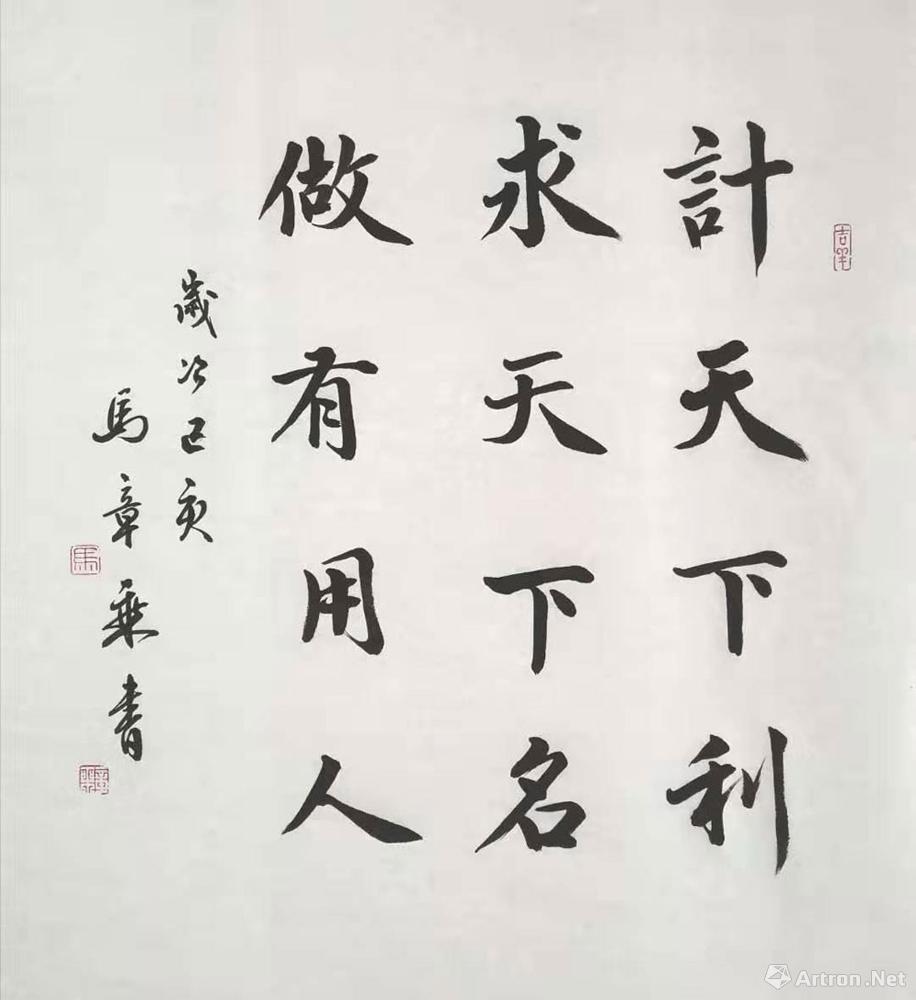 計天下利
求天下名
做有用人
歲次己亥
馬章乘書
吉羊
馬
Artron.Net